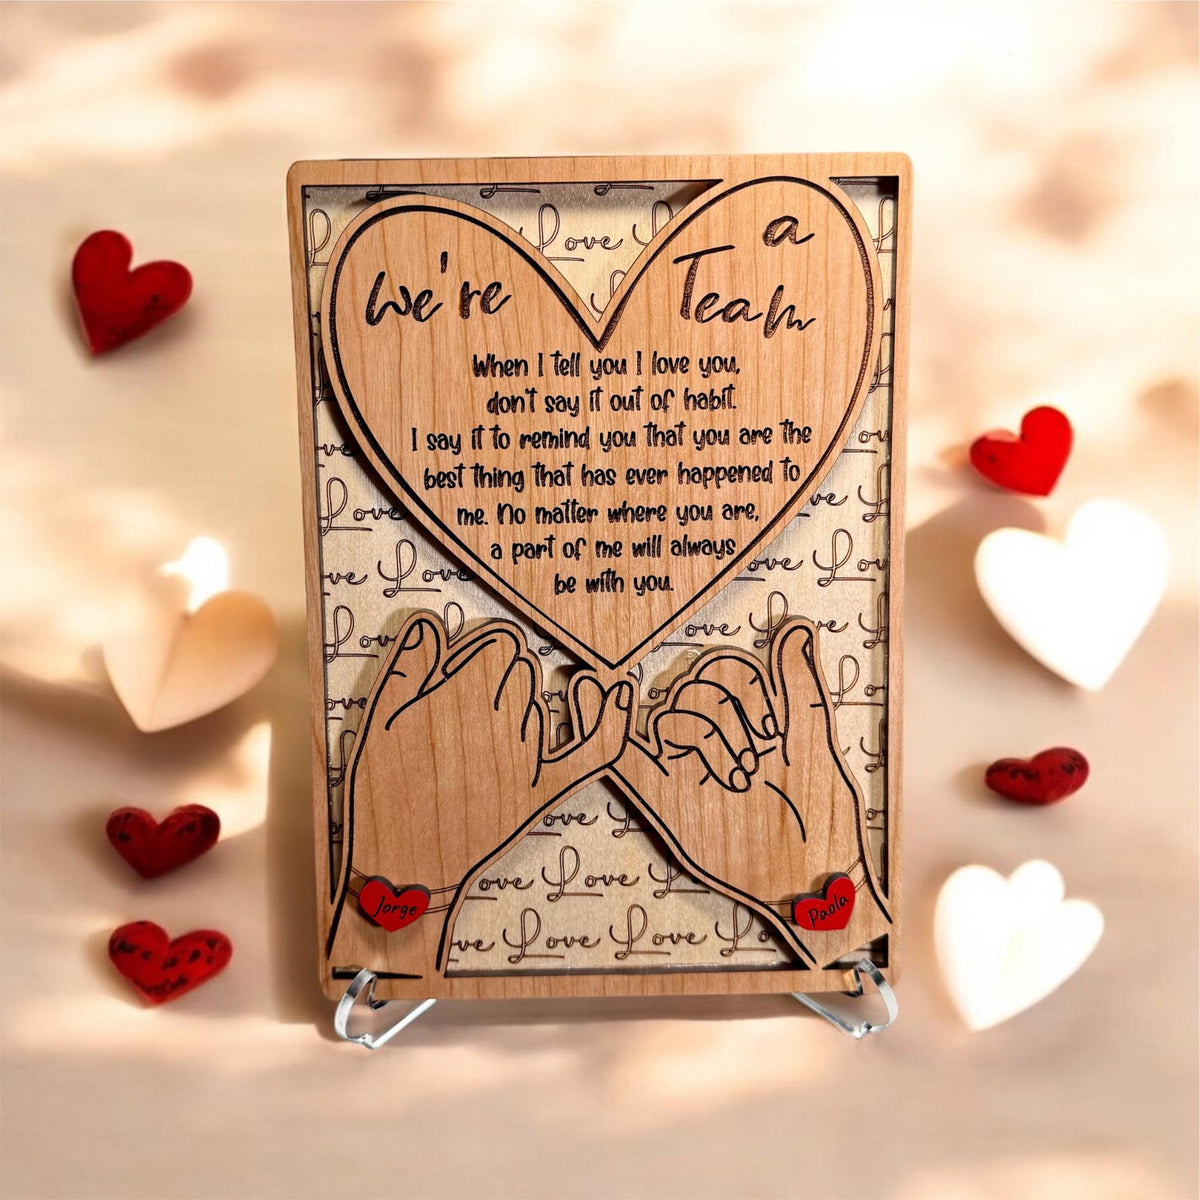 We're
a
Team
When I tell you I love you,
don't say it out of habit.
I say it to remind you that you are the
best thing that has ever happened to
me. No matter where you are,
a part of me will always
be with you.
Jorge
Paola
Love
Love
Love
Love
Love
Love Love
Love Love Love